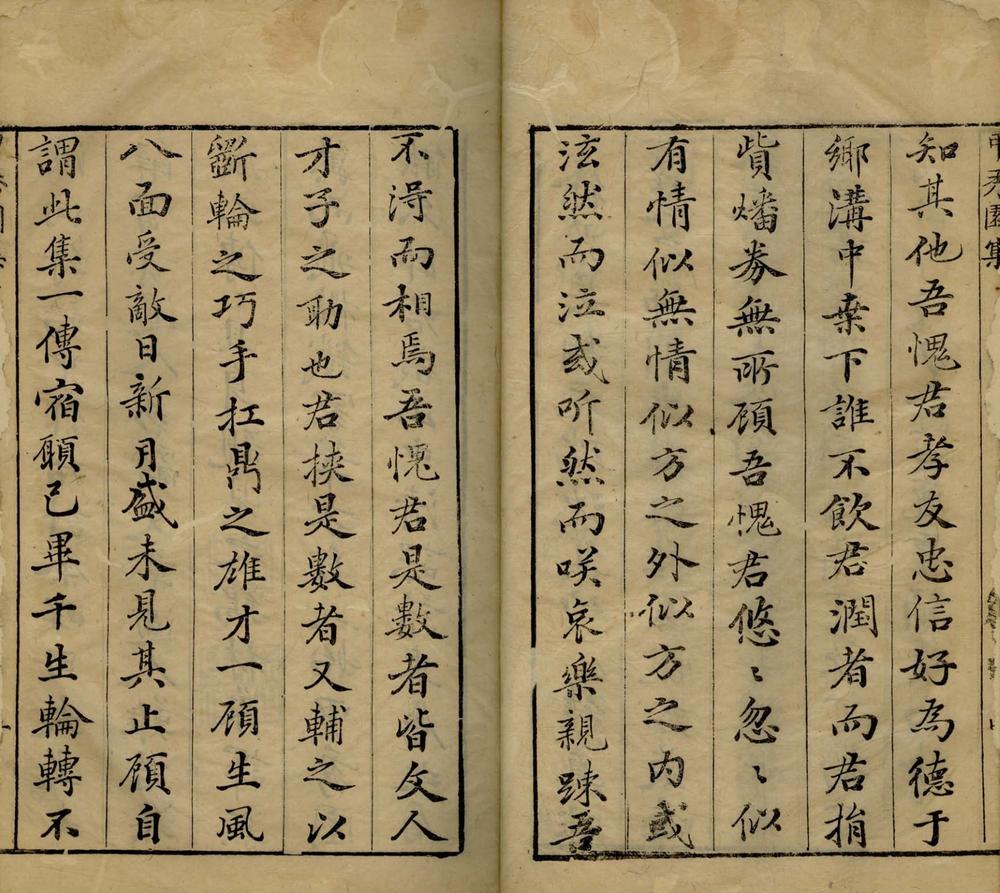 知其他吾愧君孝友忠信好為德于
鄉溝中桒下誰不飲君潤者而君捐
貲燔券無所顧吾愧君悠〻忽〻似
有情似無情似方之外似方之内或
泫然而泣或听然而咲哀樂親踈吾
不得而相焉吾愧君是數者皆文人
才子之助也君挾是數者又輔之以
斵輪之巧手扛鼎之雄才一顧生風
八面受敵日新月盛未見其止顧自
謂此集一傳宿願已畢千生輪轉不